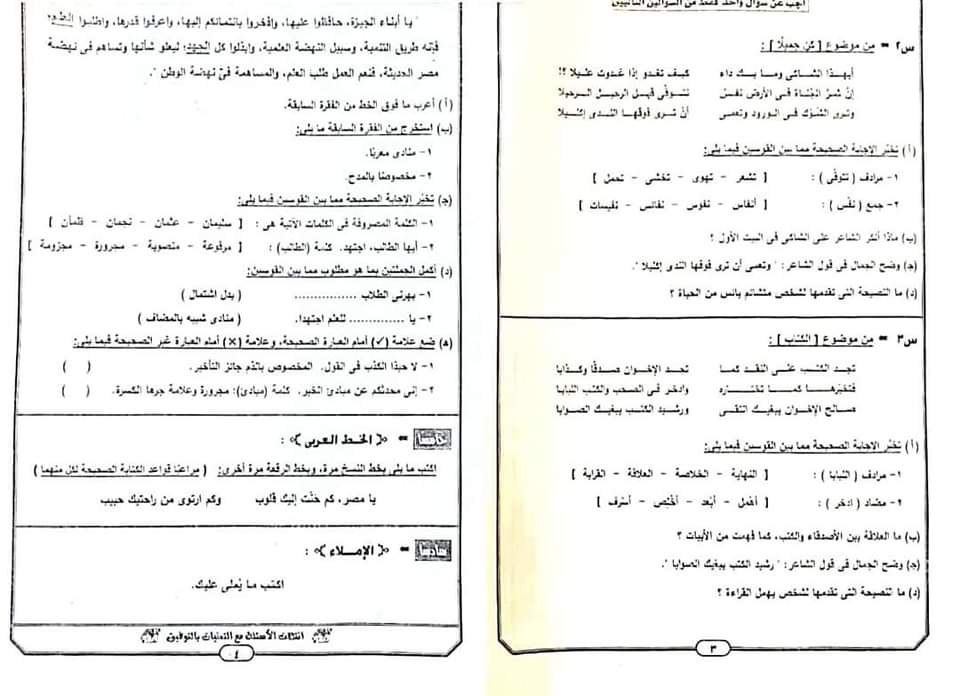 أجب عن سؤال واحد فقط من السؤالين التاليين
س٢ = من موضوع [ كن جميلا ] :
أيهذا الشاكى وما بك داء كيف تغدو إذا غدوت عليلا ؟!
إن شر الجناة فى الأرض نفس تتوقى قبل الرحيل الرحيلا
وترى الشوك فى الورود وتعمى أن ترى فوقها الندى إكليلا
( أ ) تخير الإجابة الصحيحة مما بين القوسين فيما يلى:
١- مرادف ( تتوقى ) : [ تشعر - تهوى - تخشى - تحمل ]
٢- جمع ( نفس ) : [ أنفاس - نفوس - نفائس - نفيسات ]
(ب) ماذا أنكر الشاعر على الشاكى فى البيت الأول ؟
(ج) وضح الجمال فى قول الشاعر: " وتعمى أن ترى فوقها الندى إكليلا ".
(د) ما النصيحة التى تقدمها لشخص متشائم يائس من الحياة ؟
س٣ = من موضوع [ الكتاب ] :
تجد الكتب على النقد كما تجد الإخوان صدقًا وكذابا
فتخيرها كما تختاره وادخر فى الصحب والكتب اللبابا
صالح الإخوان يبغيك التقى ورشيد الكتب يبغيك الصوابا
( أ ) تخير الإجابة الصحيحة مما بين القوسين فيما يلى:
١- مرادف ( اللبابا ) : [ النهاية - الخلاصة - العلاقة - القرابة ]
٢- مضاد ( ادخر ) : [ أهمل - أبعد - أخلص - أسرف ]
(ب) ما العلاقة بين الأصدقاء والكتب، كما فهمت من الأبيات ؟
(ج) وضح الجمال فى قول الشاعر: " رشيد الكتب يبغيك الصوابا ".
(د) ما النصيحة التى تقدمها لشخص يهمل القراءة ؟
٣
" يا أبناء الجيزة، حافظوا عليها، وافخروا بانتمائكم إليها، واعرفوا قدرها، واطلبوا العلم؛
فإنه طريق التنمية، وسبيل النهضة العلمية، وابذلوا كل الجهد؛ ليعلو شأنها وتساهم فى نهضة
مصر الحديثة، فنعم العمل طلب العلم، والمساهمة فى نهضة الوطن ".
( أ ) أعرب ما فوق الخط من الفقرة السابقة.
(ب) إستخرج من الفقرة السابقة ما يلى:
١- منادى معربًا.
٢- مخصوصًا بالمدح.
(ج) تخير الإجابة الصحيحة مما بين القوسين فيما يلى:
١- الكلمة المصروفة فى الكلمات الآتية هى : [ سليمان - عثمان - نجمان - ظمآن ]
٢- أيها الطالب، اجتهد. كلمة (الطالب) : [ مرفوعة - منصوبة - مجرورة - مجزومة ]
(د) أكمل الجملتين بما هو مطلوب مما بين القوسين:
١- بهرنى الطلاب ................ ( بدل اشتمال )
٢- يا .............. للعلم اجتهدا. ( منادى شبيه بالمضاف )
(ه) ضع علامة (✓) أمام العبارة الصحيحة، وعلامة (×) أمام العبارة غير الصحيحة فيما يلى:
١- لا حبذا الكذب فى القول. المخصوص بالذم جائز التأخير. ( )
٢- إنى محدثكم عن مبادئ الخير. كلمة (مبادئ): مجرورة وعلامة جرها الكسرة. ( )
خامسًا = «( الخط العربى )» :
اكتب ما يلى بخط النسخ مرة، وبخط الرقعة مرة أخرى: ( مراعيًا قواعد الكتابة الصحيحة لكل منهما )
يا مصر، كم حنت إليك قلوب وكم ارتوى من راحتيك حبيب
سادسًا = «( الإملاء )» :
اكتب ما يُملى عليك.
انتهت الأسئلة مع التمنيات بالتوفيق
٤